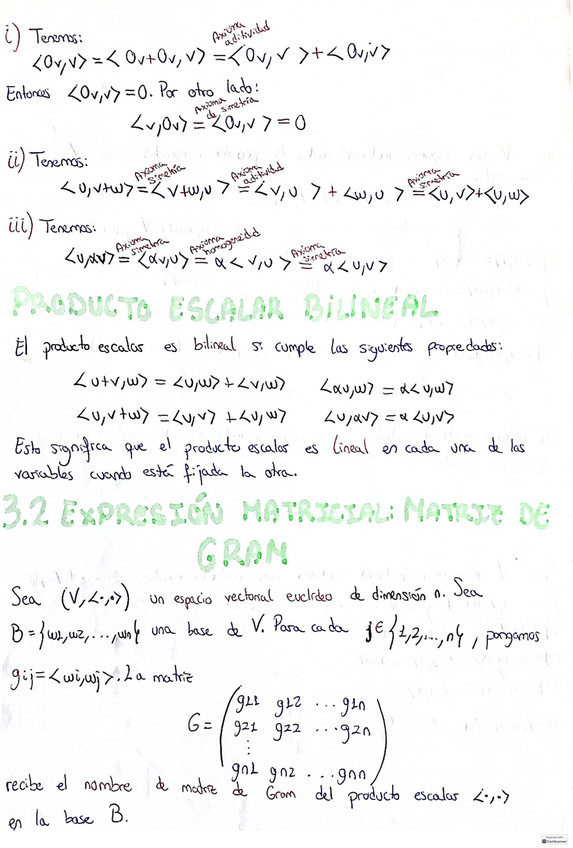 i) Tenemos:
<0v,v> = <0v+0v,v> =^{Axioma aditividad} <0v,v> + <0v,v>
Entonces <0v,v> = 0. Por otro lado:
<v,0v> =^{Axioma de simetría} <0v,v> = 0
ii) Tenemos:
<u,v+w> =^{Axioma simetría} <v+w,u> =^{Axioma aditividad} <v,u> + <w,u> =^{Axioma simetría} <u,v>+<u,w>
iii) Tenemos:
<u,αv> =^{Axioma simetría} <αv,u> =^{Axioma homogeneidad} α<v,u> =^{Axioma simetría} α<u,v>
PRODUCTO ESCALAR BILINEAL
El producto escalar es bilineal si cumple las siguientes propiedades:
<u+v,w> = <u,w> + <v,w> <αu,w> = α<u,w>
<u,v+w> = <u,v> + <u,w> <u,αv> = α<u,v>
Esto significa que el producto escalar es lineal en cada una de las
variables cuando está fijada la otra.
3.2 EXPRESIÓN MATRICIAL: MATRIZ DE
GRAN
Sea (V,<·,·>) un espacio vectorial euclídeo de dimensión n. Sea
B = {w1,w2,...,wn} una base de V. Para cada j∈{1,2,...,n}, pongamos
gij = <wi,wj>. La matriz
g11 g12 ... g1n
G = g21 g22 ... g2n
⋮
gn1 gn2 ... gnn
recibe el nombre de matriz de Gram del producto escalar <·,·>
en la base B.
CamScanner